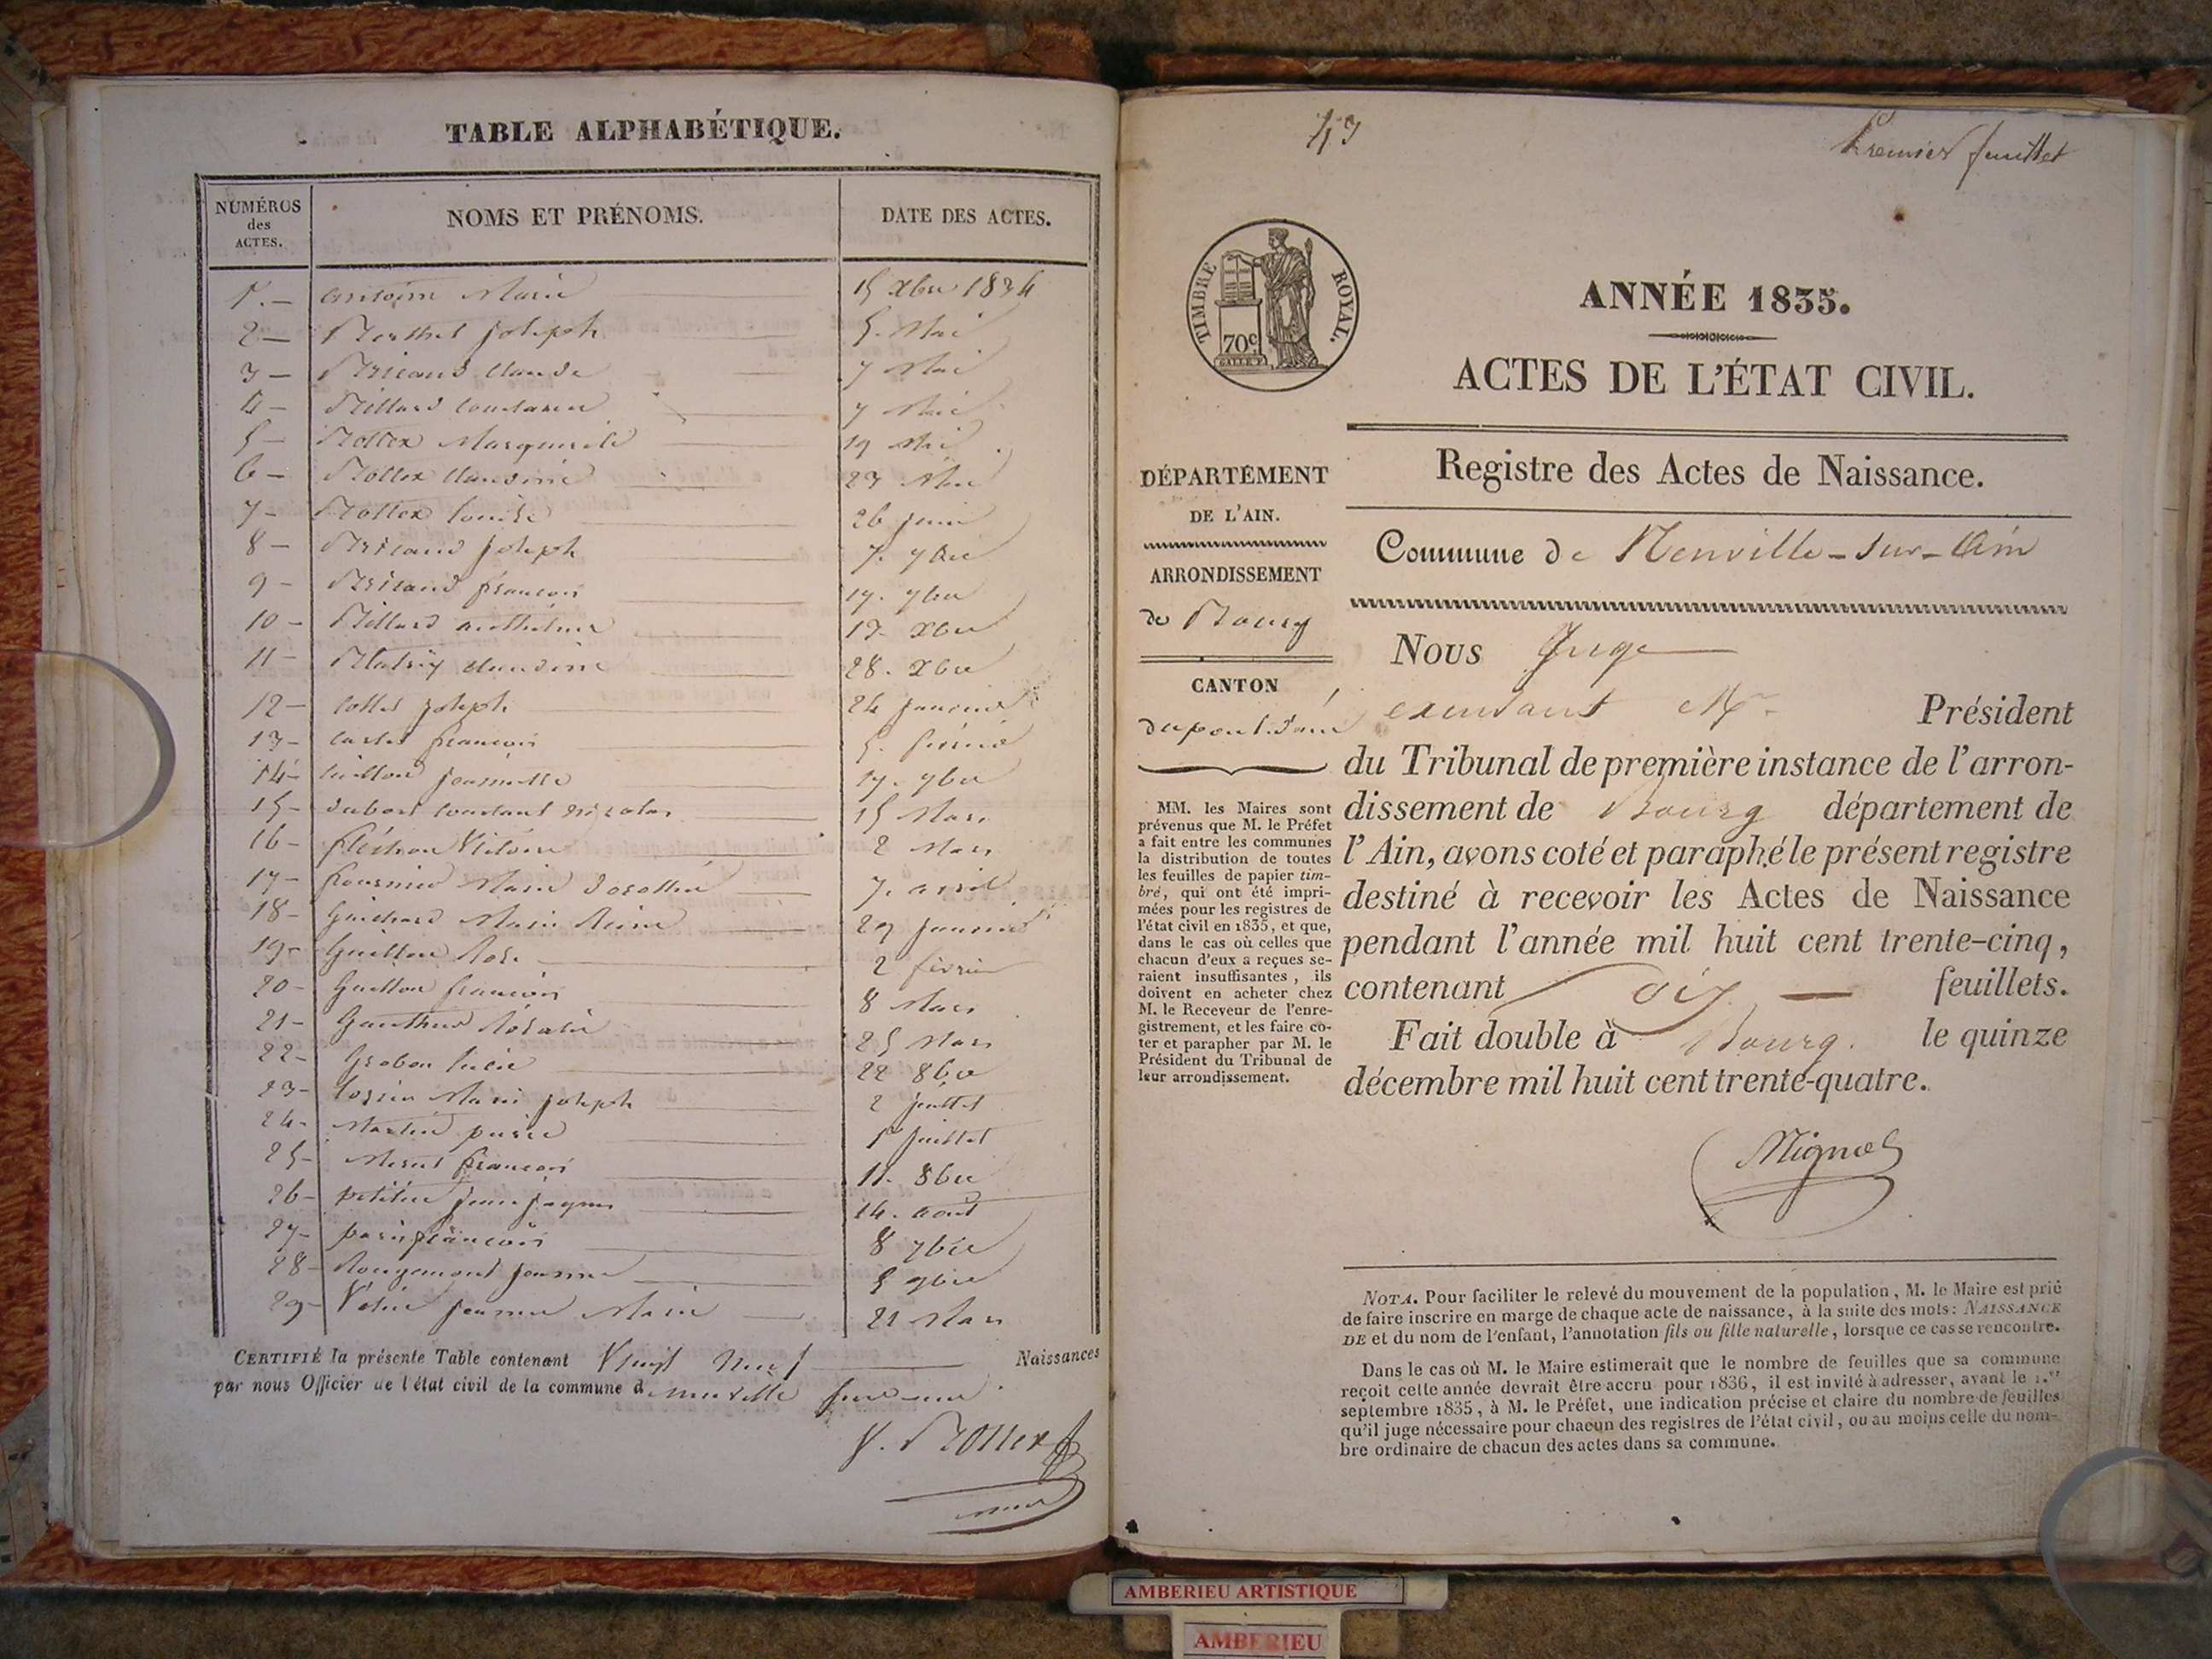 TABLE ALPHABÉTIQUE.
NUMÉROS des ACTES. NOMS ET PRÉNOMS. DATE DES ACTES.
1. — antoine Marie 15 Xbre 1834
2 — Berthet joseph 5. Mai
3 — Bricaud Claude 7 Mai
4 — Billard 7 Mai
5 — Bottex Marguerite 19 Mai
6 — Bottex Claudine 23 Mai
7 — Bottex Louise 26 juin
8 — Bricaud joseph 7. 7bre
9 — Bricaud françois 17. 9bre
10 — Billard anthelme 13. Xbre
11 — Claudine 28. Xbre
12 — joseph 24 janvier
13 — françois 5. février
14 — 17. 9bre
15 — dubost Constant nicolas 15 Mars
16 — 2 Mars
17 — fournier Marie dorothée 7. avril
18 — Guichard Marie Reine 29 janvier
19 — Guillon Rose 2 février
20 — Guillon françois 8 Mars
21 — Gauthier Rosalie 25 Mars
22 — Grobon lucie 22 8bre
23 — Marie joseph 2 juillet
24 — Martin pierre 1er juillet
25 — françois 11. 8bre
26 — petitin jean jaques 14. aout
27 — françois 8 7bre
28 — Rougemont jeanne 5 9bre
29 — jeanne Marie 21 Mars
CERTIFIÉ la présente Table contenant Vingt Neuf Naissances
par nous Officier de l'état civil de la commune de neuville sur ain
Bottex
43
Premier feuillet
TIMBRE ROYAL.
70c
ANNÉE 1835.
ACTES DE L'ÉTAT CIVIL.
Registre des Actes de Naissance.
Commune de Neuville-sur-Ain
DÉPARTEMENT
DE L'AIN.
ARRONDISSEMENT
de Bourg
CANTON
du pont d'ain
MM. les Maires sont
prévenus que M. le Préfet
a fait entre les communes
la distribution de toutes
les feuilles de papier tim-
bré, qui ont été impri-
mées pour les registres de
l'état civil en 1835, et que,
dans le cas où celles que
chacun d'eux a reçues se-
raient insuffisantes, ils
doivent en acheter chez
M. le Receveur de l'enre-
gistrement, et les faire co-
ter et parapher par M. le
Président du Tribunal de
leur arrondissement.
Nous Juge
M. Président
du Tribunal de première instance de l'arron-
dissement de Bourg département de
l'Ain, avons coté et paraphé le présent registre
destiné à recevoir les Actes de Naissance
pendant l'année mil huit cent trente-cinq,
contenant dix — feuillets.
Fait double à Bourg. le quinze
décembre mil huit cent trente-quatre.
Mignot
NOTA. Pour faciliter le relevé du mouvement de la population, M. le Maire est prié
de faire inscrire en marge de chaque acte de naissance, à la suite des mots: NAISSANCE
DE et du nom de l'enfant, l'annotation fils ou fille naturelle, lorsque ce cas se rencontre.
Dans le cas où M. le Maire estimerait que le nombre de feuilles que sa commune
reçoit cette année devrait être accru pour 1836, il est invité à adresser, avant le 1.er
septembre 1835, à M. le Préfet, une indication précise et claire du nombre de feuilles
qu'il juge nécessaire pour chacun des registres de l'état civil, ou au moins celle du nom-
bre ordinaire de chacun des actes dans sa commune.
AMBERIEU ARTISTIQUE
AMBERIEU